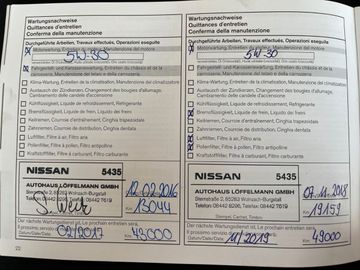 Wartungsnachweise
Quittances d'entretien
Conferma della manutenzione
Durchgeführte Arbeiten, Travaux effectués, Operazioni eseguite
Motorwartung, Entretien du moteur, Manutenzione del motore
5W-30
Fahrgestell- und Karosseriewartung, Entretien du châssis et de la
carrosserie, Manutenzione del telaio e della carrozzeria
Klima-Wartung, Entretien de la climatisation, Manutenzione del climatizzatore
Austausch der Zündkerzen, Changement des bougies d'allumage,
Cambiamento delle candele d'accensione
Kühlflüssigkeit, Liquide de refroidissement, Refrigerante
Bremsflüssigkeit, Liquide de frein, Liquido dei freni
Keilriemen, Courroie d'entraînement, Cinghia trapezoidale
Zahnriemen, Courroie de distribution, Cinghia dentata
Luftfilter, Filtre à air, Filtro aria
Pollenfilter, Filtre à pollen, Filtro antipolline
Kraftstofffilter, Filtre à carburant, Filtro carburante
NISSAN 5435
AUTOHAUS LÖFFELMANN GMBH
Sternstraße 2, 85283 Wolnzach-Burgstall
12.02.2016
Km 13044
Der nächste Wartungsdienst ist vorgesehen
Il prossimo servizio
Datum/Date/Data 02/2017 Km 43000
22
Wartungsnachweise
Quittances d'entretien
Conferma della manutenzione
Durchgeführte Arbeiten, Travaux effectués, Operazioni eseguite
Motorwartung, Entretien du moteur, Manutenzione del motore
5W-30
Fahrgestell- und Karosseriewartung, Entretien du châssis et de la
carrosserie, Manutenzione del telaio e della carrozzeria
Klima-Wartung, Entretien de la climatisation, Manutenzione del climatizzatore
Austausch der Zündkerzen, Changement des bougies d'allumage,
Cambiamento delle candele d'accensione
Kühlflüssigkeit, Liquide de refroidissement, Refrigerante
Bremsflüssigkeit, Liquide de frein, Liquido dei freni
Keilriemen, Courroie d'entraînement, Cinghia trapezoidale
Zahnriemen, Courroie de distribution, Cinghia dentata
Luftfilter, Filtre à air, Filtro aria
Pollenfilter, Filtre à pollen, Filtro antipolline
Kraftstofffilter, Filtre à carburant, Filtro carburante
NISSAN 5435
AUTOHAUS LÖFFELMANN GMBH
Sternstraße 2, 85283 Wolnzach-Burgstall
07.11.2018
Km 19159
Stempel, Cachet, Timbro
Der nächste Wartungsdienst ist vorgesehen
Il prossimo servizio
Datum/Date/Data 11/2019 Km 49000